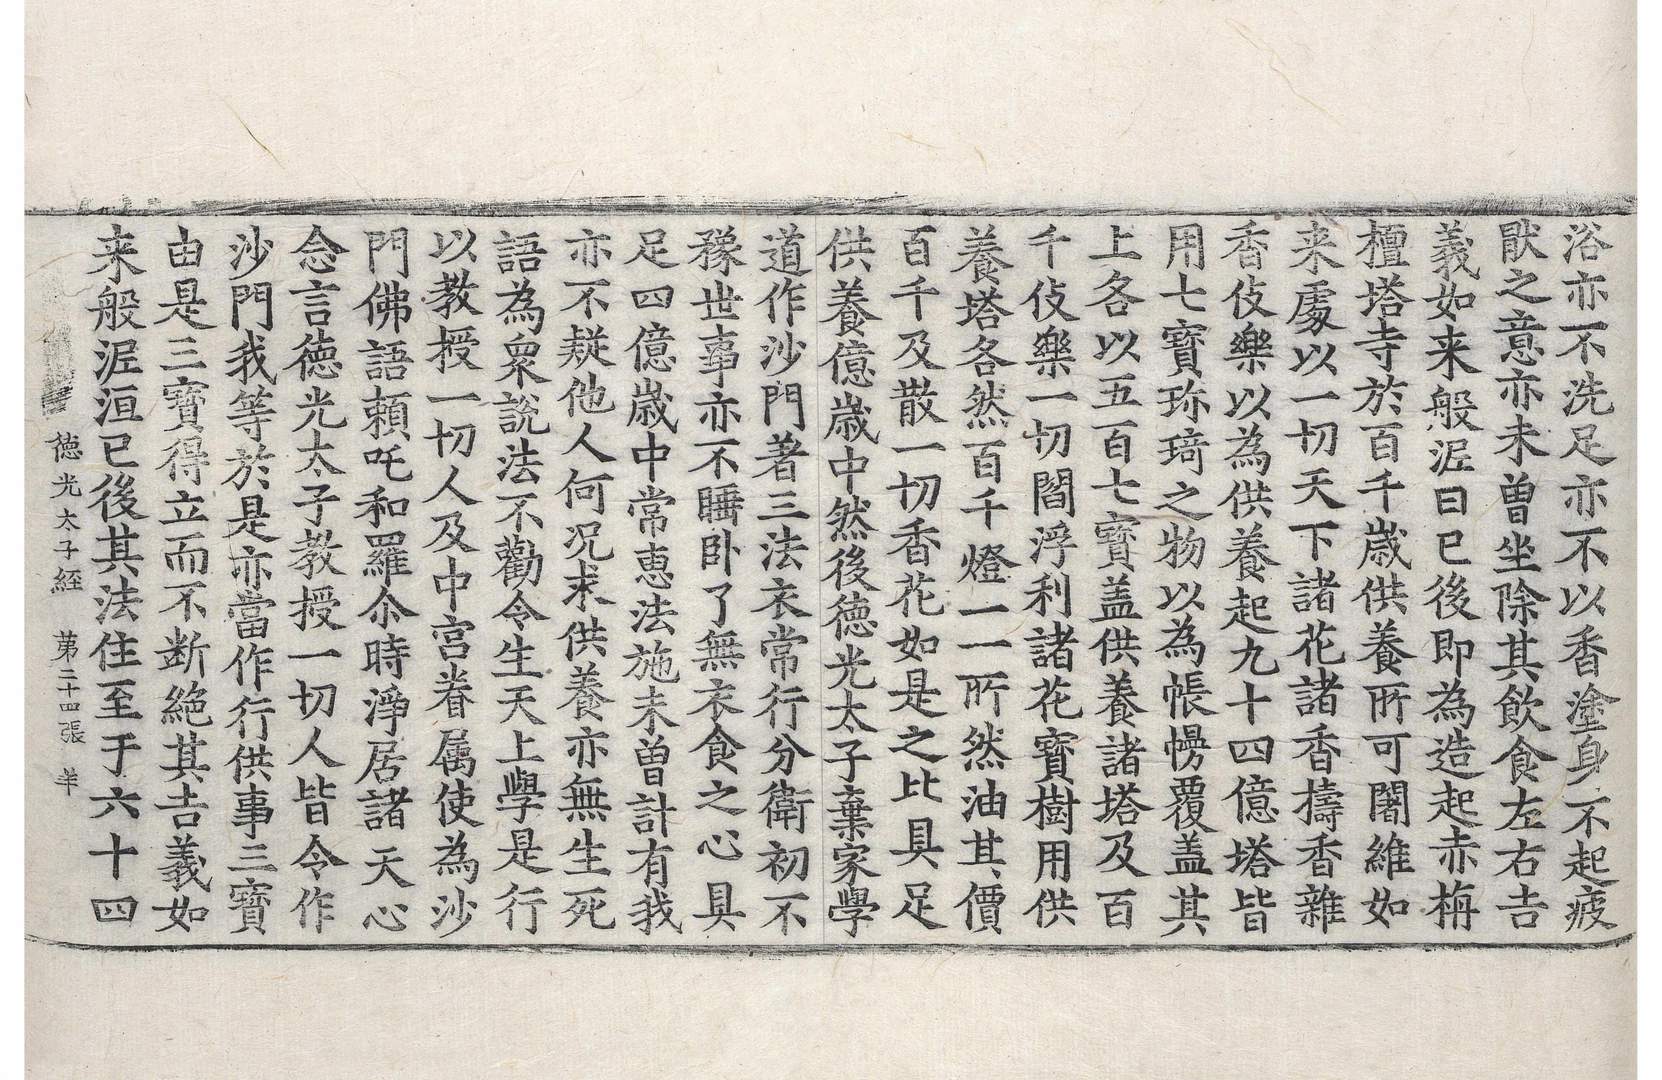 浴亦不洗足亦不以香塗身不起疲
猒之意亦未曽坐除其飲食左右吉
義如来般泥曰已後即為造起赤栴
檀塔寺於百千歳供養所可闍維如
来處以一切天下諸花諸香擣香雜
香伎樂以為供養起九十四億塔皆
用七寶珎琦之物以為帳幔覆盖其
上各以五百七寶盖供養諸塔及百
千伎樂一切閻浮利諸花寶樹用供
養塔各然百千燈一一所然油其價
百千及散一切香花如是之比具足
供養億歳中然後徳光太子棄家學
道作沙門著三法衣常行分衛初不
豫世事亦不睡卧了無衣食之心具
足四億歳中常恵法施未曽計有我
亦不疑他人何况求供養亦無生死
語為衆説法不勸令生天上學是行
以教授一切人及中宫眷属使為沙
門佛語頼吒和羅尒時淨居諸天心
念言徳光太子教授一切人皆令作
沙門我等於是亦當作行供事三寶
由是三寶得立而不断絶其吉義如
来般泥洹已後其法住至于六十四
徳光太子経　第二十四張　羊